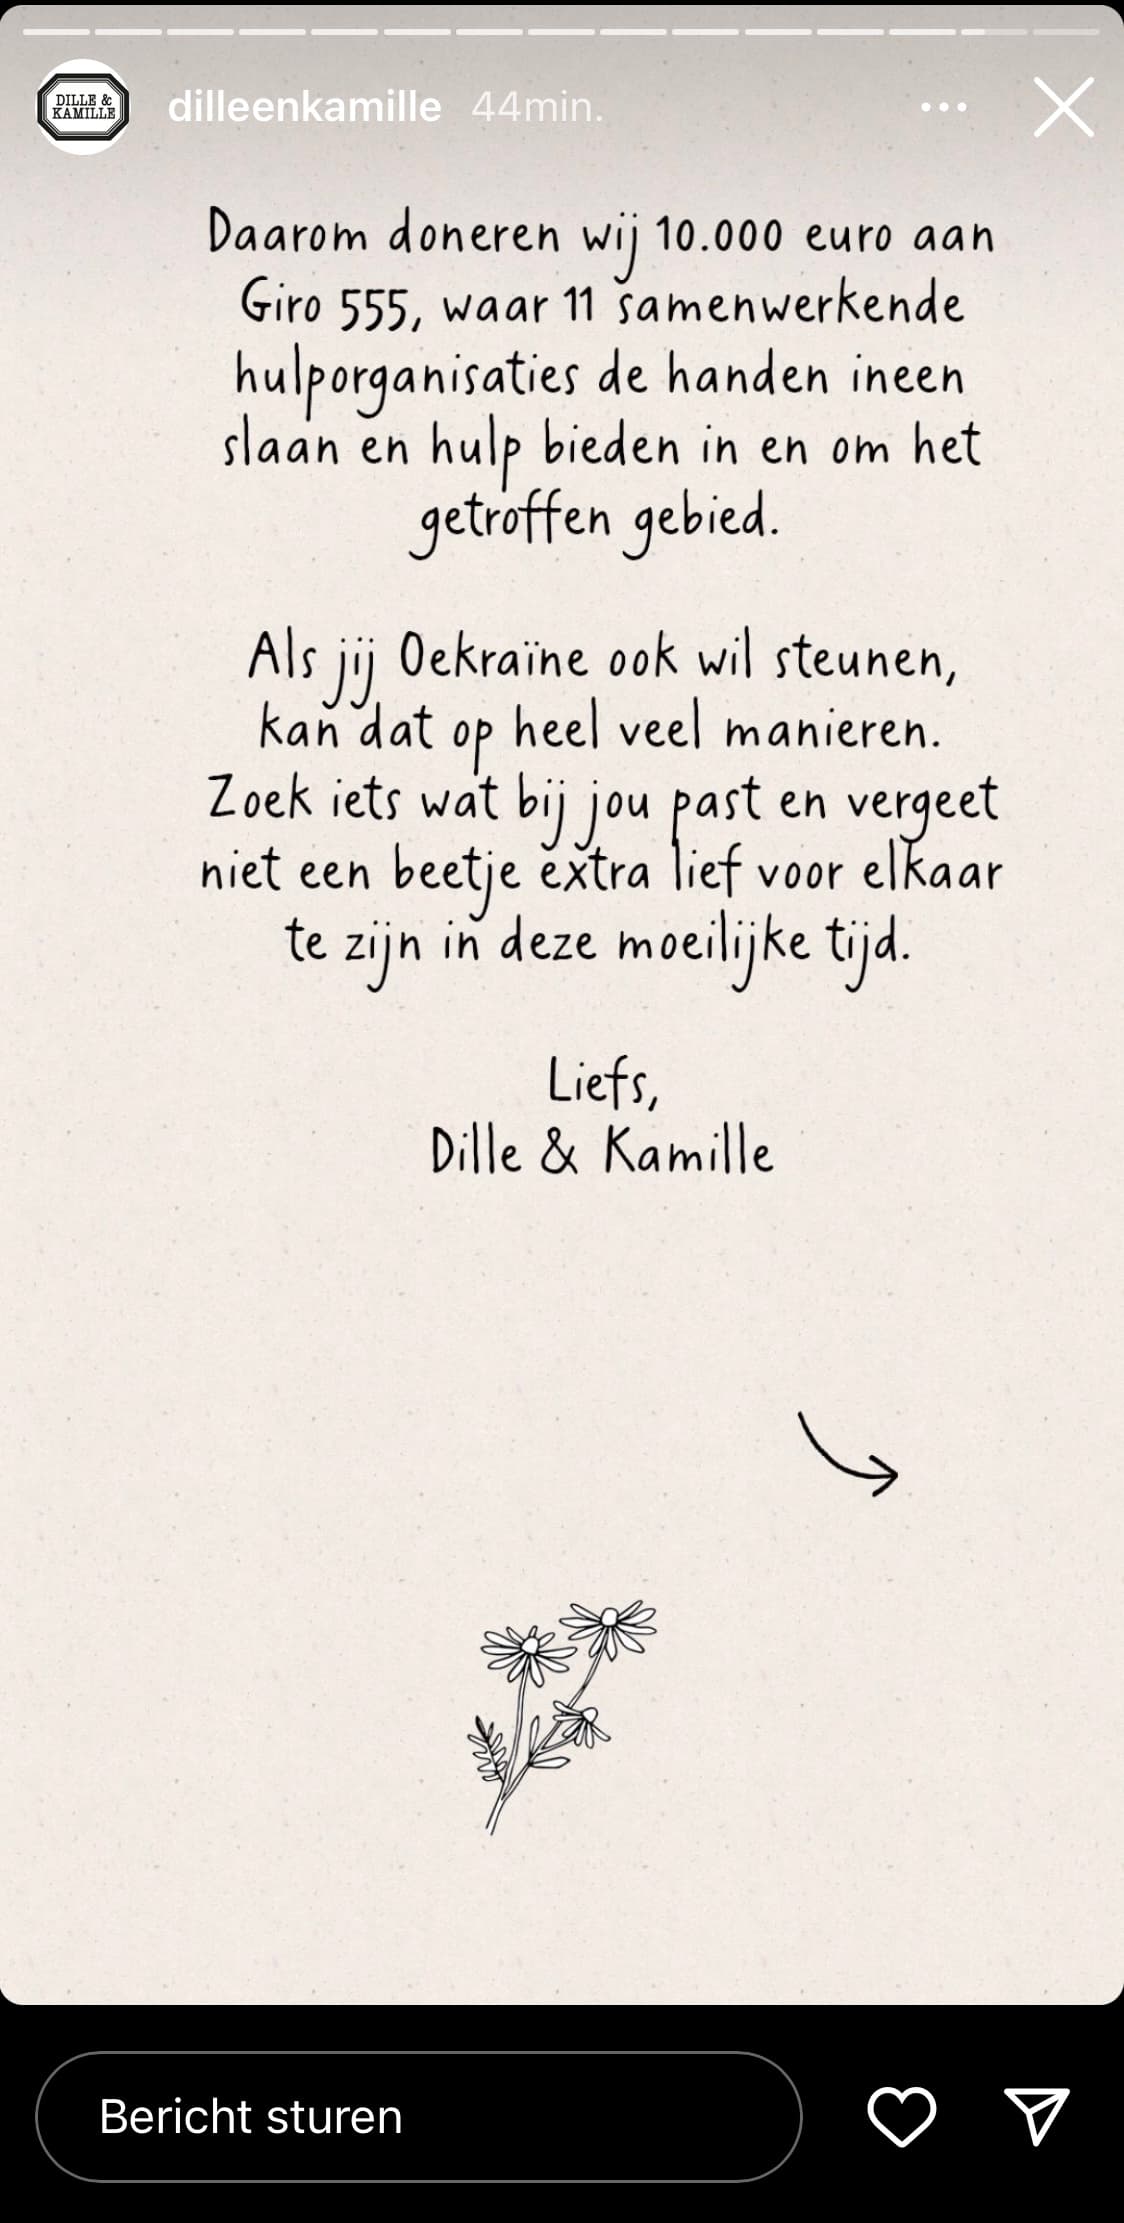 DILLE &
KAMILLE
dilleenkamille 44min.
Daarom doneren wij 10.000 euro aan
Giro 555, waar 11 samenwerkende
hulporganisaties de handen ineen
slaan en hulp bieden in en om het
getroffen gebied.
Als jij Oekraïne ook wil steunen,
kan dat op heel veel manieren.
Zoek iets wat bij jou past en vergeet
niet een beetje extra lief voor elkaar
te zijn in deze moeilijke tijd.
Liefs,
Dille & Kamille
Bericht sturen